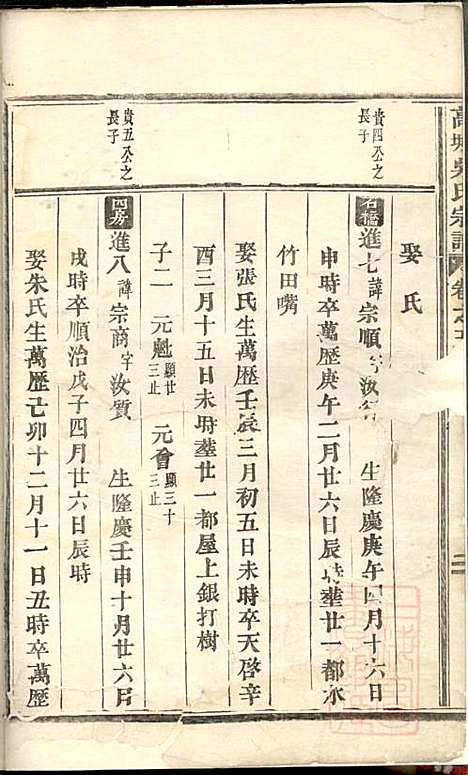 吳氏宗譜
娶氏
貴四公之長子
石橋 進七諱宗順字汝 生隆慶庚午四月十六日
申時卒萬歷庚午二月廿六日辰時塟廿一都水
竹田嘴
娶張氏生萬歷壬辰三月初五日未時卒天啓辛
酉三月十五日未時塟廿一都屋上銀打樹
子二 元魁顯廿三止 元會顯三十三止
貴五公之長子
四房 進八諱宗商字汝質 生隆慶壬申十月廿六日
戌時卒順治戊子四月廿六日辰時
娶朱氏生萬歷己卯十二月十一日丑時卒萬歷